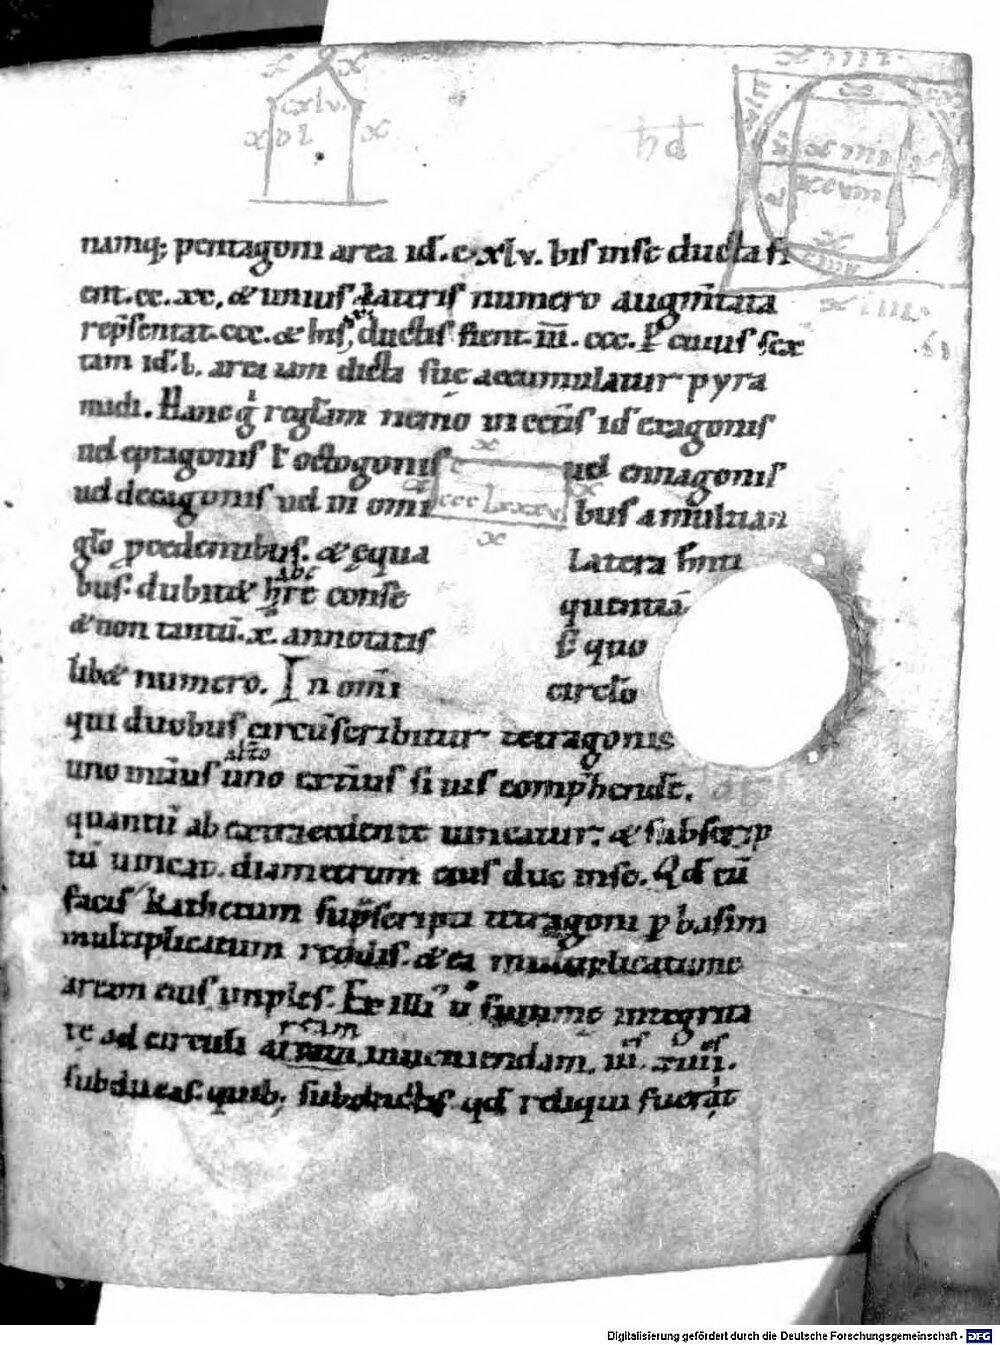 x x
cxlv.
x x
x iiii.
namq; pentagoni area id. c.xlv. bis in se ducta fi
ent. cc. xc. & unius lateris numero augmtata
repsentat. ccc. & his ductis fient. iii. ccc. P cuius sex
tam id. l. area iam dicta sue accumulatur pyra
midi. Hanc g reglam nemo in cetis id exagonis
ud eptagonis l octogonis ud ennagonis
ccclxxxv
ud decagonis ud in omi bus amultian
glo pcedentibus. & equa Latera
bus. dubitat abe hre conse quentia
& non tantu. x. annotatis E quo
libet numero. In omi circlo
qui duobus circuscribitur tetragonis
uno inius uno alio extius si uis comphende.
quantu ab extra ecedente uincatur; & subscrip
tu uincat. diametrum eius duc in se. Qd cu
facis kathetum supscripti tetragoni p basim
multiplicatum reddis. & ea multiplicatione
aream eius imples. Ex illi u summe integrita
te ad circuli aream inueniendam. iii. xiiii.
subducas. quib; subductis qd reliqui fuerat
Digitalisierung gefördert durch die Deutsche Forschungsgemeinschaft - DFG